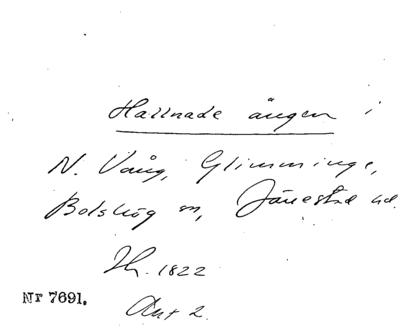 Hallnade ängen i
N. Vång, Glimminge,
Bolshög m,
Th. 1822
Nr 7691.
Ant 2.